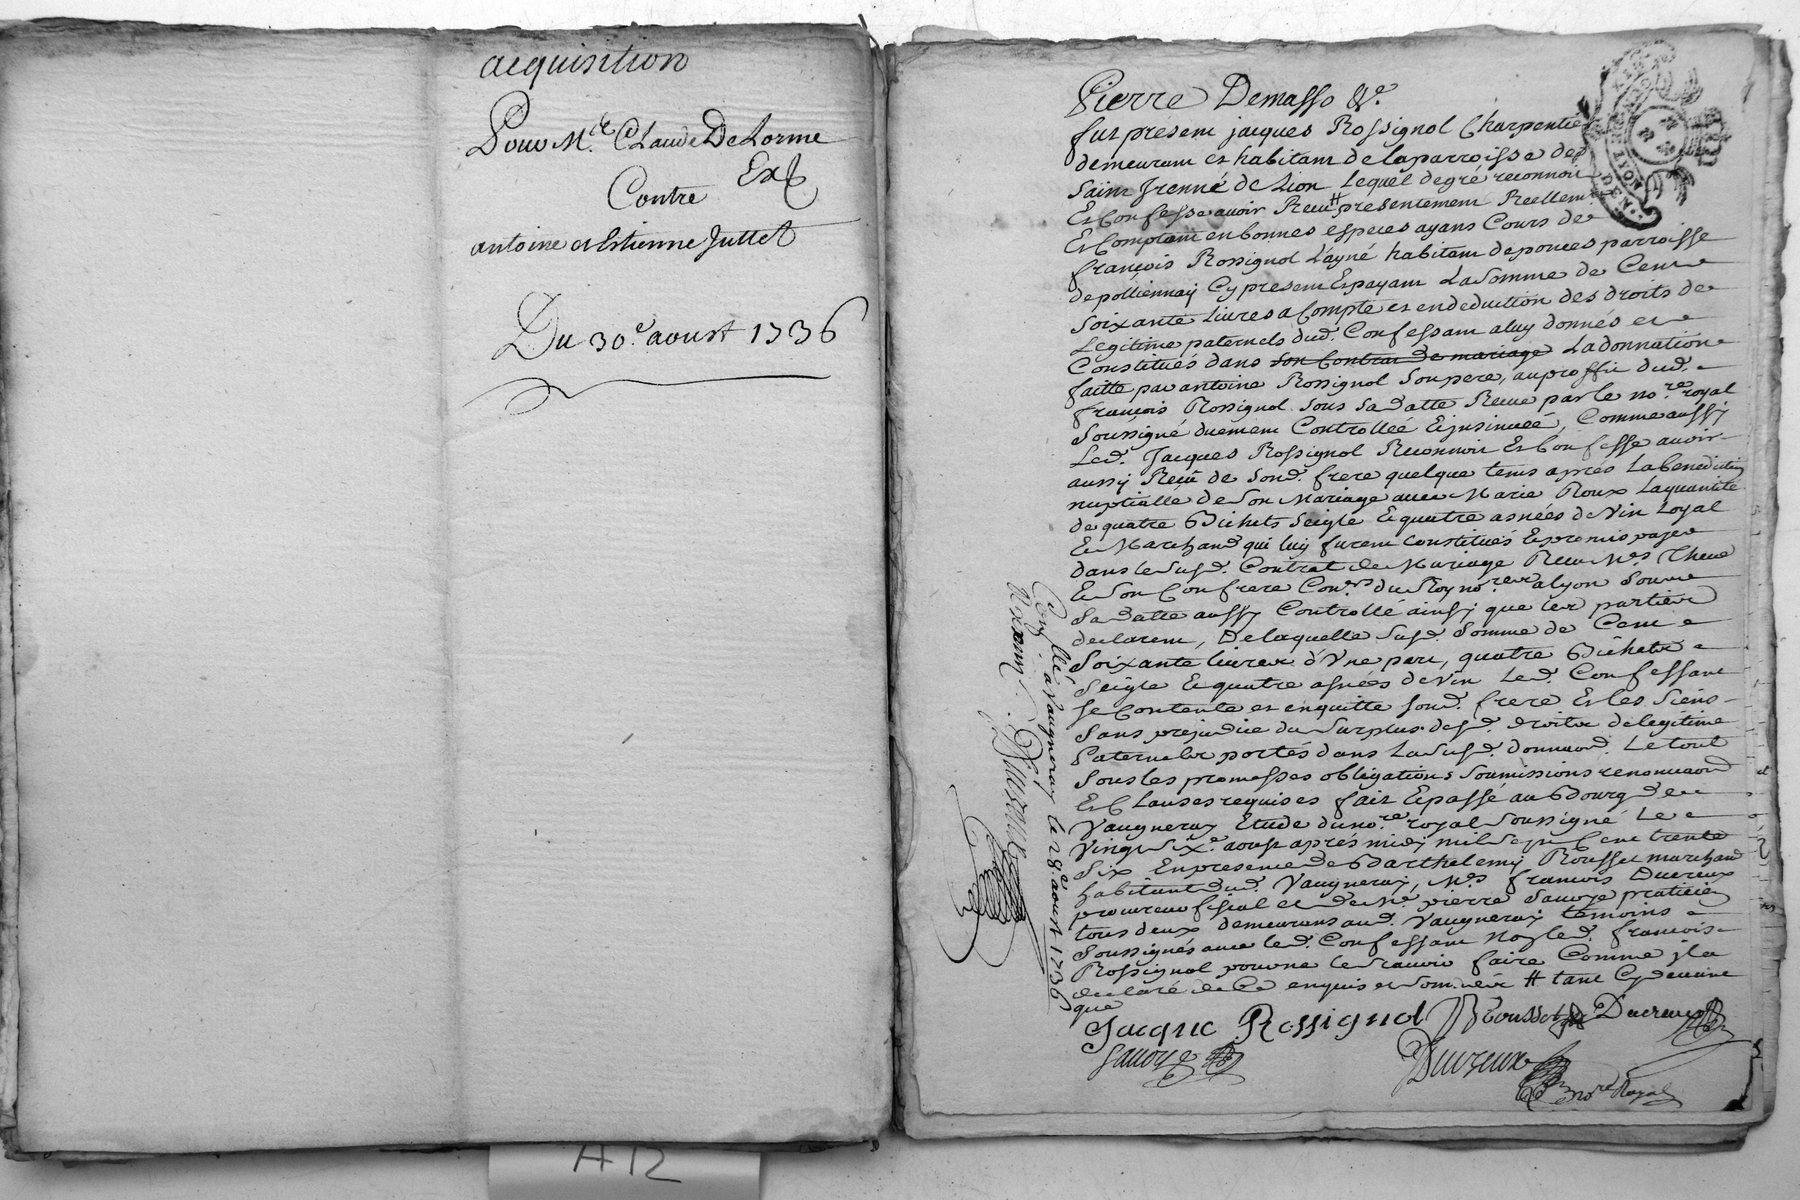 acquisition
Pour Mre Claude DeLorme
Exb
Contre
antoine et Estienne Juttet
Du 30.e aoust 1736
Pierre Demasso &c.
fut présent jacques Rossignol Charpentier
demeurant et habitant de laparroisse de
Saint Irenné de Lion Lequel degré reconnoit
Et Confesse avoir Receu # présentement Reellemt
Et Comptant en bonnes especes ayans Cours de
françois Rossignol L'ayné habitant de ponces parroisse
depolliennay Cy present Et payant La Somme de Cent
Soixante Livres a Compte et en deduction des droits de
Legitime paternels dud. Confessant a luy donnés et
Constitués dans son Contrat de mariage La donnation
faitte par antoine Rossignol Son pere, au proffit dud.
françois Rossignol Sous Sa datte Receue par le nore royal
Soussigné duement Controlleé Et insinueé, Comme aussy
Led. Jacques Rossignol Reconnoit Et Confesse avoir
aussy Receü de Sond. frere quelque tems aprés La benediction
nuptialle de Son Mariage avec Marie Roux La quantité
de quatre Bichets Seigle Et quatre asnées de Vin Loyal
Et Marchand qui luy furent Constitués Et promis payer
dans le Susd. Contrat de Mariage Receu Mes
Et Son Confrere Coners du Roy norer a Lyon Sous
Sa datte aussy Controllé ainsy que les parties
declarent, De laquelle Susd. Somme de Cent
Soixante livres d'Vne part, quatre Bichets
Seigle Et quatre asnées de Vin Led. Confessant
Se Contente et en quitte Sond. frere Et les Siens
Sans prejudice du Surplus desd. droits de legitime
Paternels portés dans La Susd. donnaon. Le tout
Sous les promesses obligations Soumissions renonciaons
Et Clauses requises fait Et passé au Bourg de
Vaugneray Etude du nore royal Soussigné Le
Vingt Six.e aoust aprés midy mil Sept Cent trente
Six En presence de Barthelemy Rousset marchand
habitant dud. Vaugneray, Me françois Ducreux
procureur fiscal et de Me pierre Savoye praticien
tous deux demeurans aud. Vaugneray temoins
Soussignés avec led. Confessant Non led. françois
Rossignol pour ne le Scavoir faire Comme jl a
declaré de Ce enquis et Sommé # tant Cydevant
que
Jacque Rossignol Brousset Ducreux
Savoye
Ducreux
nore Royal
Con.llé a Vaugneray le 28.e aoust 1736
Ducreux
A12